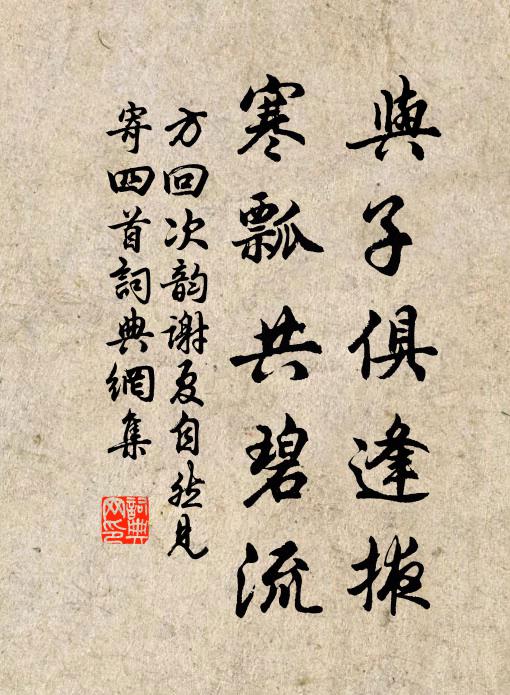 與子俱逢掖
寒瓢共碧流
方回次韵謝夏自然見
寄四首詞典網集
詞典
网印